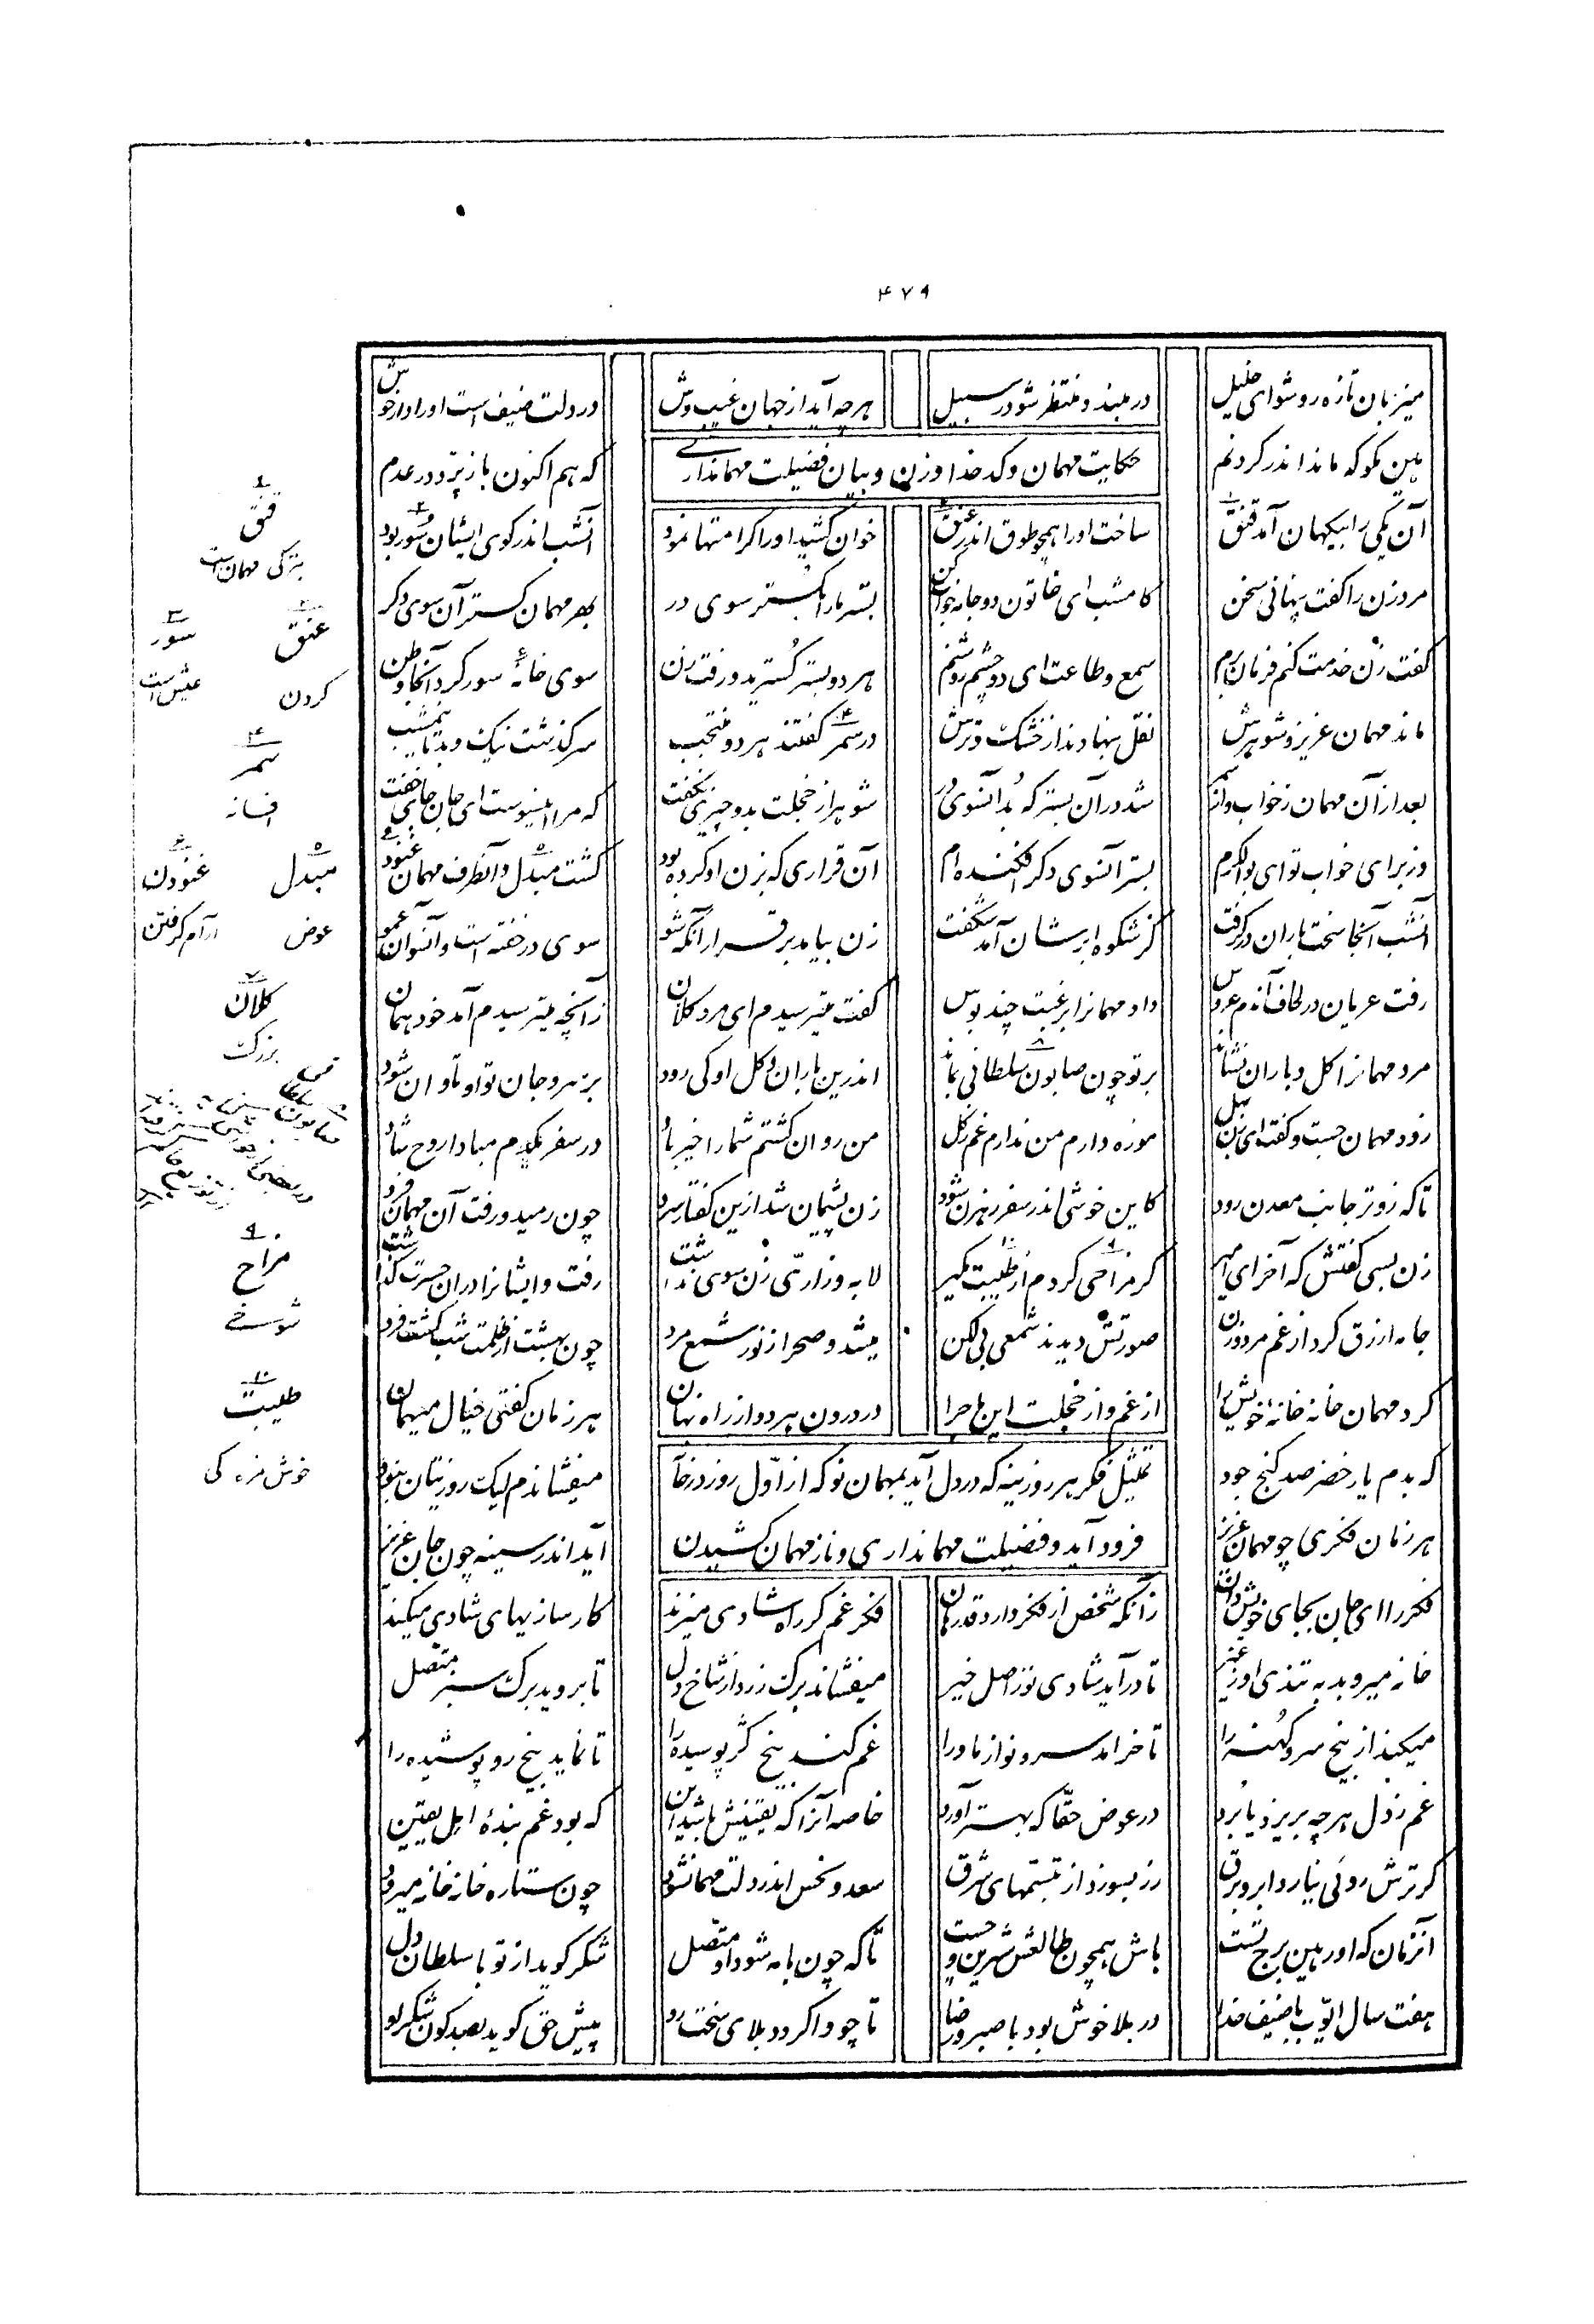 ۴۷۹
میزبان تازه رو شو ای خلیل در مبند و منتظر شو در سبیل هر چه آید از جهان غیب وش در دلت ضیف است او را دار خوش
هین مگو که ماند اندر گردنم که هم اکنون باز پرد در عدم
حکایت مهمان و کدخدا و زن و بیان فضیلت مهمانداری
آن یکی را بیگهان آمد قنق ساخت او را همچو طوق اندر عنق خوان کشید او را کرامتها نمود آنشب اندر کوی ایشان سور بود
مرد زن را گفت پنهانی سخن کامشب ای خاتون دو جامه خواب کن بستر ما را بگستر سوی در بهر مهمان گستر آن سوی دگر
گفت زن خدمت کنم فرمان برم سمع و طاعت ای دو چشم روشنم هر دو بستر گسترید و رفت زن سوی خانهٔ سور کرد آنجا وطن
ماند مهمان عزیز و شوهرش نقل بنهادند از خشک و ترش در سمر گفتند هر دو منتجب سرگذشت نیک و بد تا نیمشب
بعد از آن مهمان ز خواب و از سمر شد در آن بستر که بد آنسوی در شوهر از خجلت بدو چیزی نگفت که مر اینسوست ای جان جای خفت
وز برای خواب تو ای بوالکرم بستر آنسوی دگر افکنده ام آن قراری که بزن او کرده بود گشت مبدل و آنطرف مهمان غنود
آنشب آنجا سخت باران درگرفت کز شکوه ابر شان آمد شگفت زن بیامد بر قرار آنکه شو سوی در خفته است و آنسو آن عمو
رفت عریان در لحاف آندم عروس داد مهمانرا برغبت چند بوس گفت میترسیدم ای مرد کلان زآنچه میترسیدم آمد خود همان
مرد مهمانرا گل و باران نشاند بر تو چون صابون سلطانی بماند اندرین باران و گل او کی رود بر سر و جان تو او تاوان شود
زود مهمان جست و گفت ای زن بهل موزه دارم من ندارم غم ز گل من روان گشتم شما را خیر باد در سفر یکدم مبادا روح شاد
تا که زوتر جانب معدن رود کاین خوشی اندر سفر رهزن شود زن پشیمان شد ازین گفتار سرد چون رمید و رفت آن مهمان فرد
زن بسی گفتش که آخر ای امیر گر مزاحی کردم از طیبت مگیر لابه و زاریّ زن سودی نداشت رفت و ایشانرا در آن حسرت گذاشت
جامه ازرق کرد از غم مرد و زن صورتش دیدند شمعی بی لگن میشد و صحرا ز نور شمع مرد چون بهشت از ظلمت شب گشت فرد
کرد مهمان خانه خانهٔ خویش را از غم و از خجلت این ماجرا در درون هر دو از راه نهان هر زمان گفتی خیال میهمان
که بدم یار خضر صد گنج جود میفشاندم لیک روزیتان نبود
تمثیل فکر هر روزینه که در دل آید بمهمان نو که از اوّل روز در خانه
هر زمان فکری چو مهمان عزیز آید اندر سینه چون جان عزیز
فرود آید و فضیلت مهمانداری و ناز مهمان کشیدن
فکر را ای جان بجای خویش دان زآنکه شخص از فکر دارد قدر جان فکر غم گر راه شادی میزند کارسازیهای شادی میکند
خانه میروبد به تندی او ز غیر تا درآید شادی نو ز اصل خیر میفشاند برگ زرد از شاخ دل تا بروید برگ سبز متصل
میکند از بیخ سرو کهنه را تا خرامد سرو نو از ماورا غم کند بیخ کژ پوسیده را تا نماید بیخ رو پوشیده را
غم ز دل هر چه بریزد یا برد در عوض حقّا که بهتر آورد خاصه آنرا که یقینش باشد این که بود غم بندهٔ اهل یقین
گر ترش روئی نیارد ابر و برق رز بسوزد از تبسّمهای شرق سعد و نحس اندر دلت مهمان شود چون ستاره خانه خانه میرود
آنزمان که او رهین برج تست باش همچون طالعش شیرین و چست تا که چون با مه شود او متصل شکر گوید از تو با سلطان دل
هفت سال ایّوب با ضیف خدا در بلا خوش بود با صبر و رضا تا چو واگردد بلای سخت رو پیش حق گوید بصد گون شکر او
۱ قنق
بترکی مهمان است
۲ عنق
گردن
۳ سور
عیش است
۴ سمر
افسانه
۵ مبدل
عوض
۶ غنودن
آرام گرفتن
۷ کلان
بزرگ
۹ مزاح
شوخی
۱۰ طیبت
خوش مزه گی